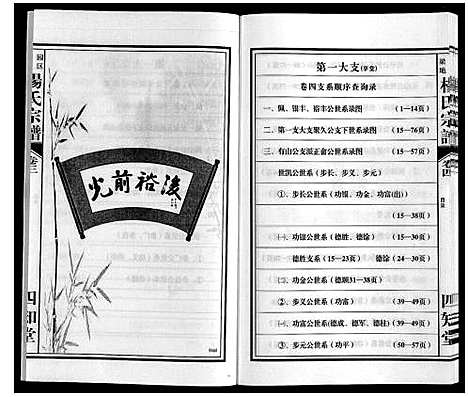 园区
楊氏宗譜
卷三
四知堂
光前裕後
楊氏宗譜
卷四
四知堂
第一大支(享堂)
卷四支系顺序查询录
一、佩、银丰、裕丰公世系录图 (1—14页)
二、第一大支支聚久公支下世系录图 (15—76页)
三、有山公支派正俞公世系录图 (15—57页)
世凯公世系(步长、步义、步元)
①、步长公世系(功银、功金、功富(出))
(15—38页)
㈠、功银公世系(德胜、德徐) (15—30页)
德胜支系(15—23页) 德徐(24—30页)
㈡、功金公世系(德顺31—38页)
②、步义公世系(功富) (39—49页)
㈠、功富公世系(德成、德军、德柱) (39—49页)
③、步元公世系(功平) (50—57页)